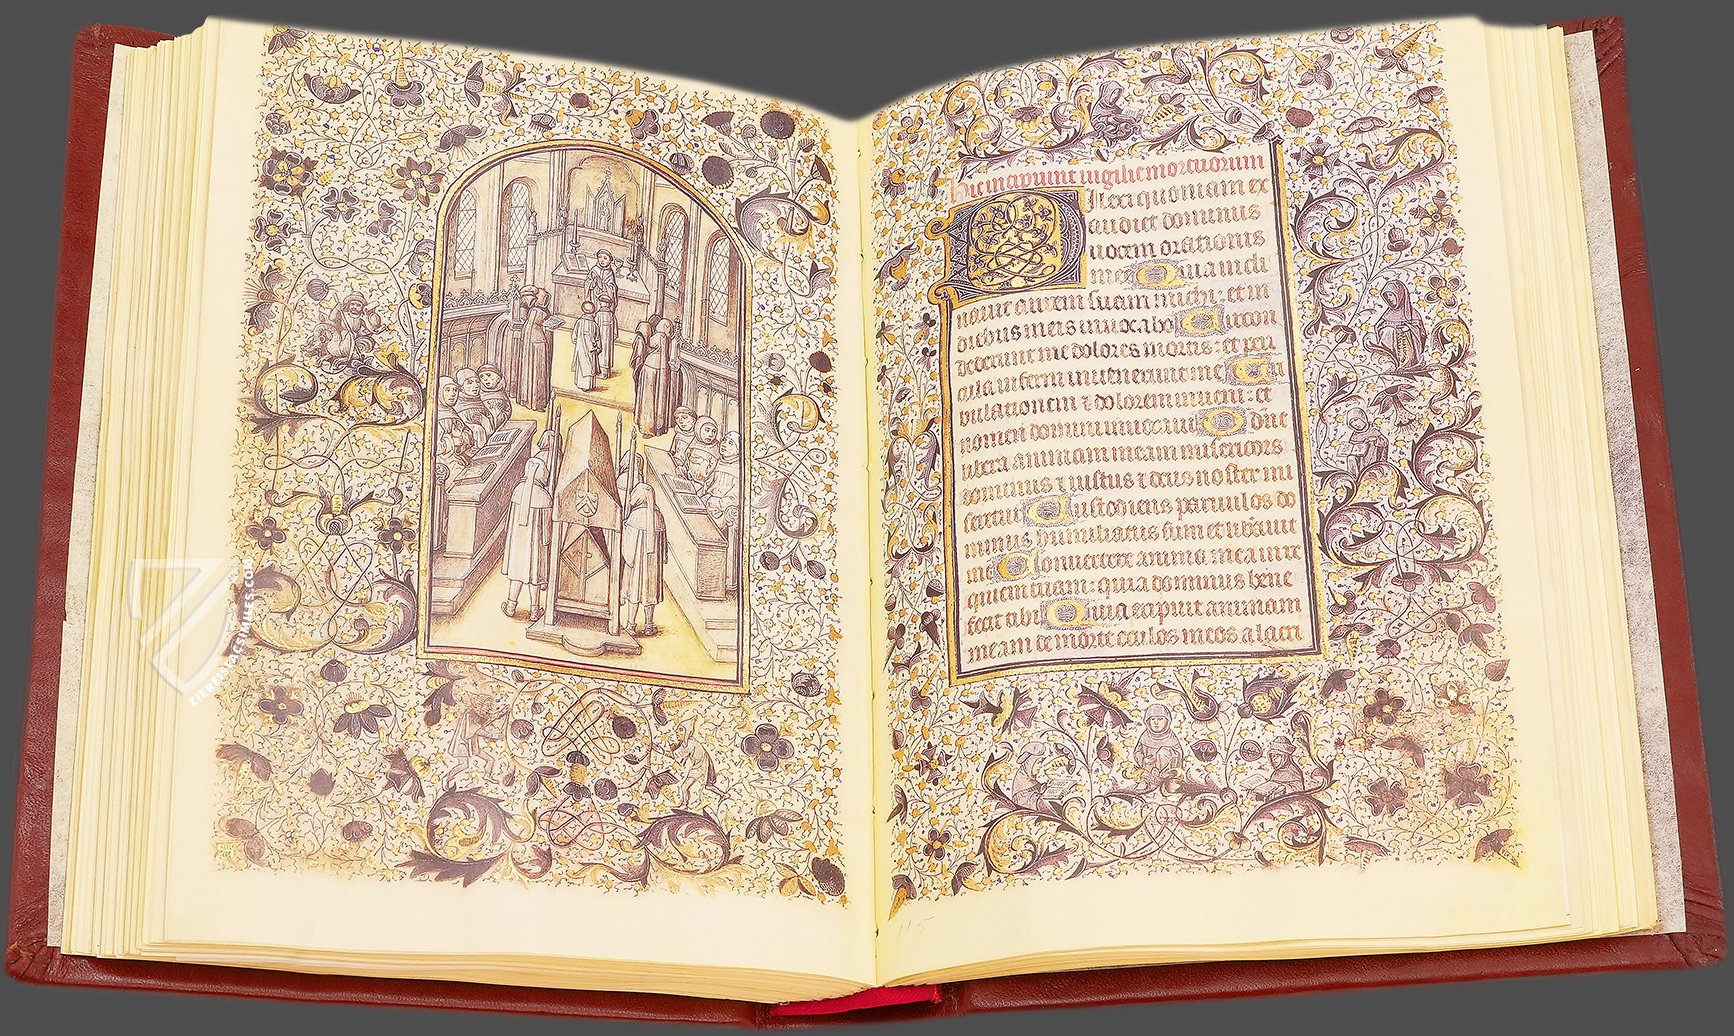 ZIEREIS FACSIMILES.COM
Hic incipiunt vigilie mortuorum
Dilexi quoniam ex
audiet dominus
uocem orationis
mee Quia incli
nauit aurem suam michi: et in
diebus meis inuocabo Circon
dederunt me dolores mortis: et peri
cula inferni inuenerunt me Tri
bulationem ⁊ dolorem inueni: et
nomen domini inuocaui O dn̄e
libera animam meam misericors
dominus ⁊ iustus ⁊ deus noster mi
seretur Custodiens paruulos do
minus humiliatus sum et liberauit
me Conuertere anima mea in re
quiem tuam: quia dominus bene
fecit tibi Quia eripuit animam
meam de morte oculos meos a lacri
115